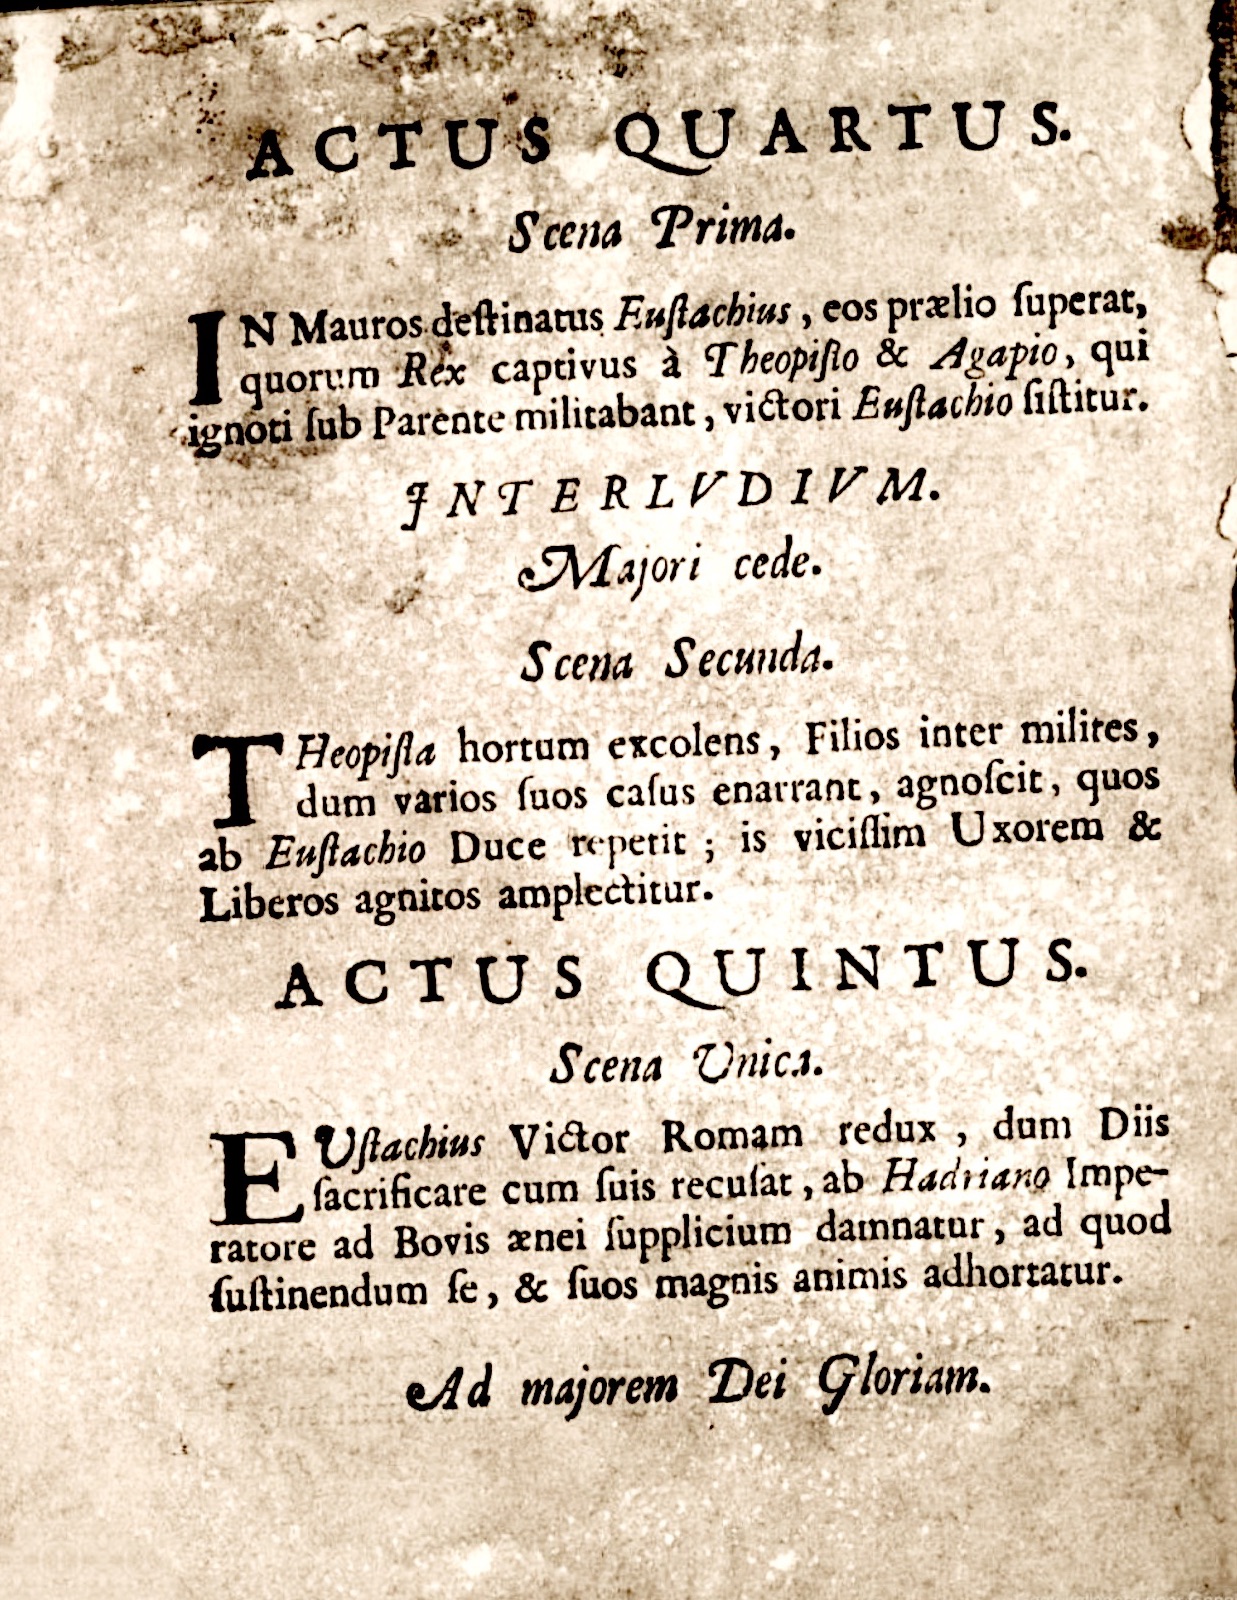 ACTUS QUARTUS.
Scena Prima.
IN Mauros deſtinatus Euſtachius, eos prælio ſuperat,
quorum Rex captivus à Theopiſto & Agapio, qui
ignoti ſub Parente militabant, victori Euſtachio ſiſtitur.
INTERLVDIVM.
Majori cede.
Scena Secunda.
THeopiſta hortum excolens, Filios inter milites,
dum varios ſuos caſus enarrant, agnoſcit, quos
ab Euſtachio Duce repetit; is viciſſim Uxorem &
Liberos agnitos amplectitur.
ACTUS QUINTUS.
Scena Unica.
EUſtachius Victor Romam redux, dum Diis
ſacrificare cum ſuis recuſat, ab Hadriano Impe-
ratore ad Bovis ænei ſupplicium damnatur, ad quod
ſuſtinendum ſe, & ſuos magnis animis adhortatur.
Ad majorem Dei Gloriam.